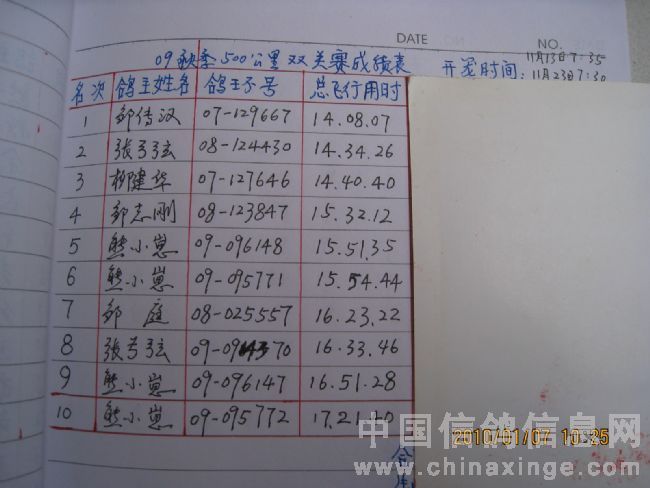 DATE
NO.
09秋季500公里双关赛成绩表
开笼时间: 11月13日7:35
11月23日7:30
名次 鸽主姓名 鸽环号 总飞行用时
1 邹传汉 07-129667 14.08.07
2 张弓弦 08-124430 14.34.26
3 柳建华 07-127646 14.40.40
4 邹志刚 08-123847 15.32.12
5 熊小崽 09-096148 15.51.35
6 熊小崽 09-095771 15.54.44
7 邹庭 08-025557 16.23.22
8 张弓弦 16.33.46
9 熊小崽 09-096147 16.51.28
10 熊小崽 09-095772 17.21.20
中国信鸽信息网
2010/01/07 10:25
www.chinaxinge.com